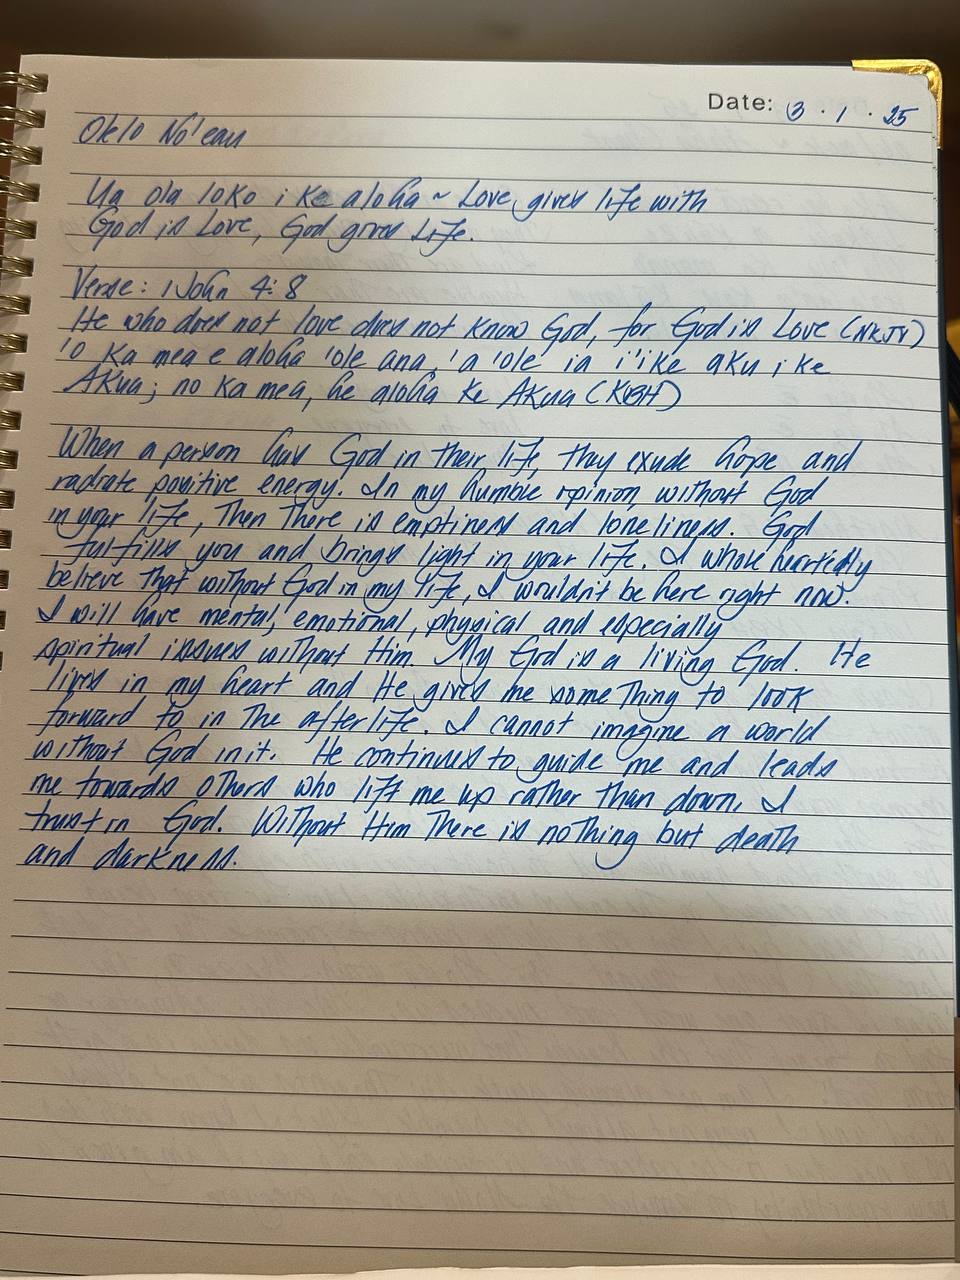 Date: 3 · 1 · 25
Olelo No'eau
Ua ola loko i ke aloha ~ Love gives life with
God is Love, God gives Life.
Verse: 1 John 4:8
He who does not love does not know God, for God is Love (NKJV)
'O ka mea e aloha 'ole ana, 'a'ole ia i 'ike aku i ke
Akua; no ka mea, he aloha ke Akua (KBH)
When a person has God in their life, they exude hope and
radiate positive energy. In my humble opinion, without God
in your life, Then There is emptiness and loneliness. God
fulfills you and brings light in your life. I whole heartidly
believe that without God in my life, I wouldn't be here right now.
I will have mental, emotional, physical and especially
spiritual issues without Him. My God is a living God. He
lives in my heart and He gives me something to look
forward to in The afterlife. I cannot imagine a world
without God in it. He continues to guide me and leads
me towards others who lift me up rather than down. I
trust in God. Without Him There is nothing but death
and darkness.